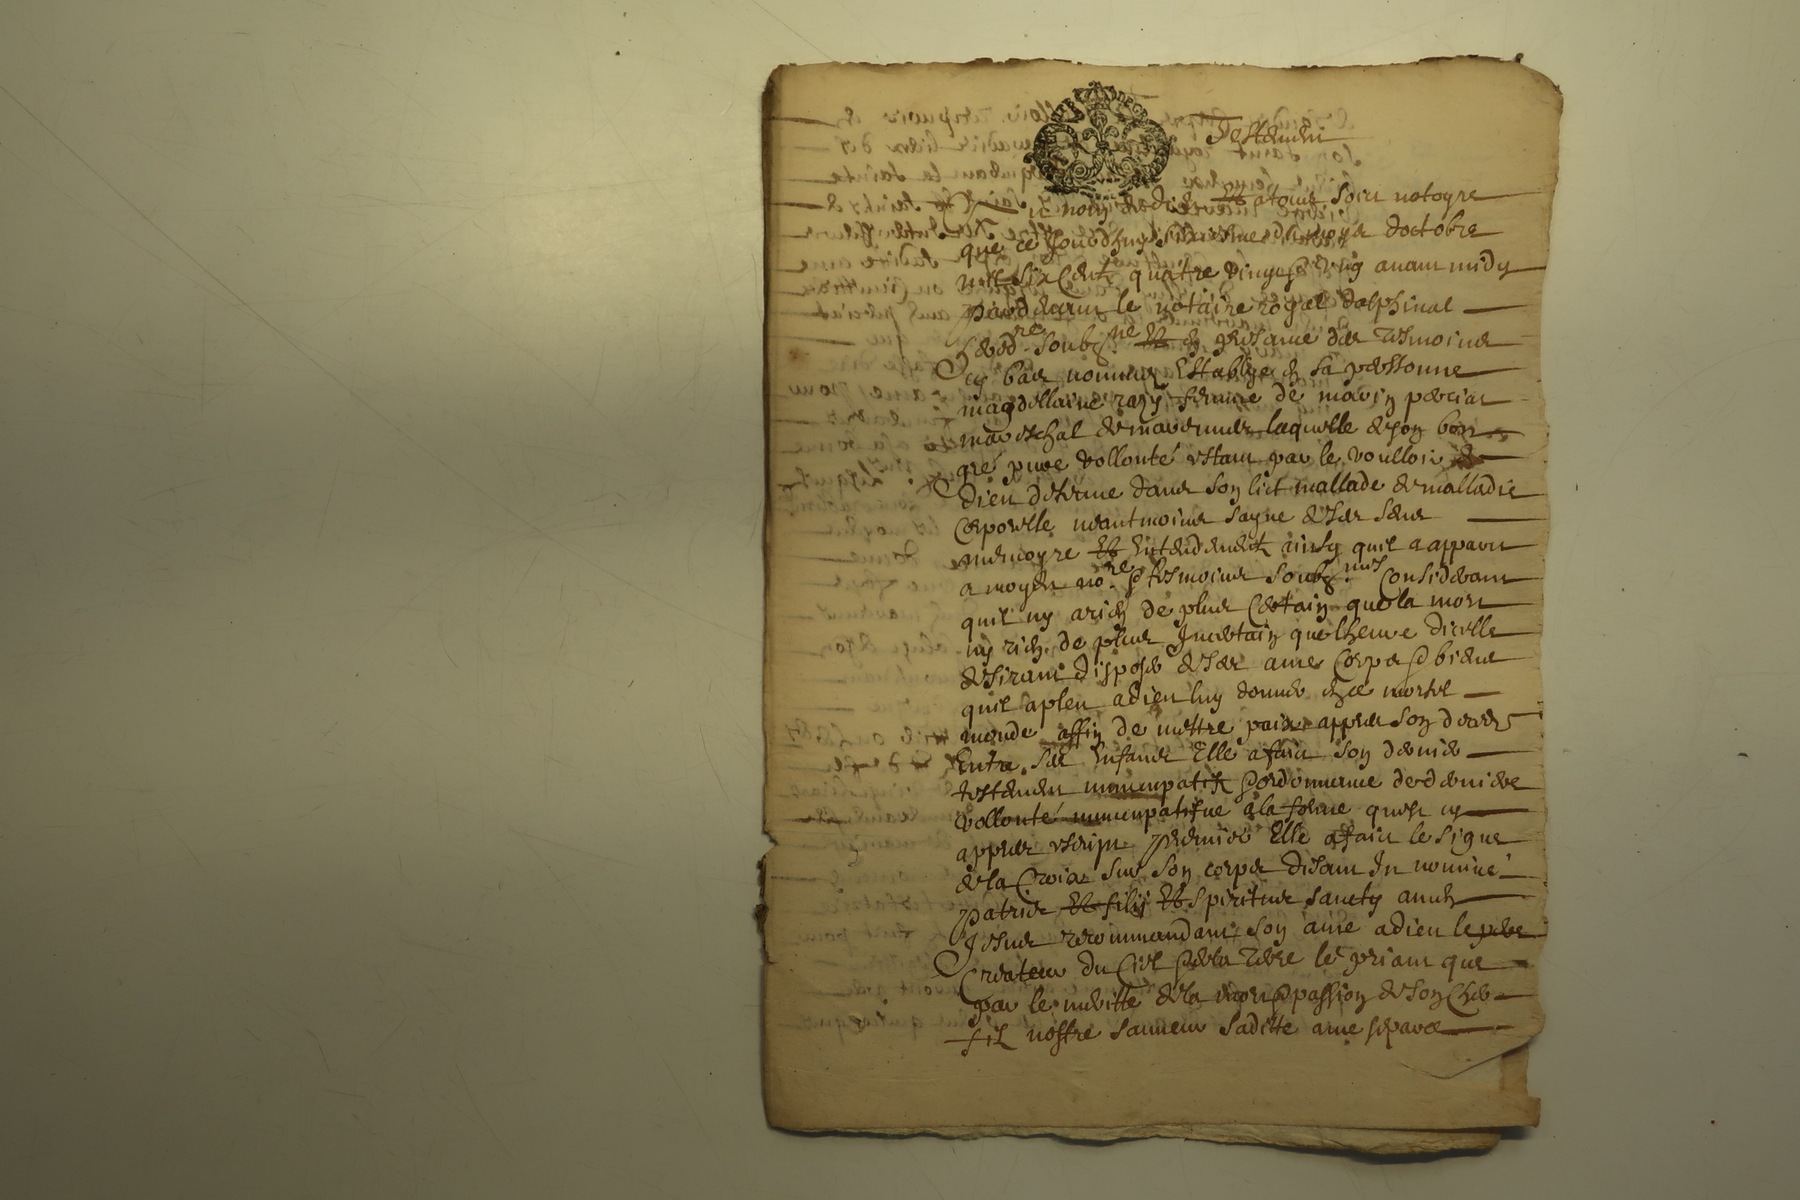 Testement
Au nom de dieu Et atous soict notoyre
que ce Jourdhuy sixiesme du moys doctobre
mil six Cents quatre vingts & ung avant midy
pardevant le notaire royal dalphinal
soubz.né Et en presance des tesmoins
cy bas nommes Establye en sa personne
magdellaine razy femme de
mareschal de laquelle de son bon
gré pure vollonté estant par le voulloir de
dieu detenue dans son lict mallade de malladie
Corporelle neantmoins sayne de ses sens
memoyre Et Entendement ainsy quil a apparu
a moydit no.re & tesmoins soubz.nés Considerant
quil ny a rien de plus Certain que la mort
ny rien de plus Incertain que lheure dicelle
desirant disposer de ses ame Corps & biens
quil a pleu a dieu luy donner en ce mortel
monde affin de mettre paix appres son deces
Entre ses Enfans Elle a faict son dernier
testement nuncupatif & ordonnance de derniere
vollonté nuncupatifve a la forme quest cy
appres escripte premier Elle a faict le signe
de la Croix sur son corps disant In nomine
patris Et filii Et spiritus sancty amen
Jesus recommandant son ame a dieu le pere
Createur du Ciel & de la terre le priant que
par le meritte de la mort & passion de son cher
fils nostre sauveur saditte ame separee